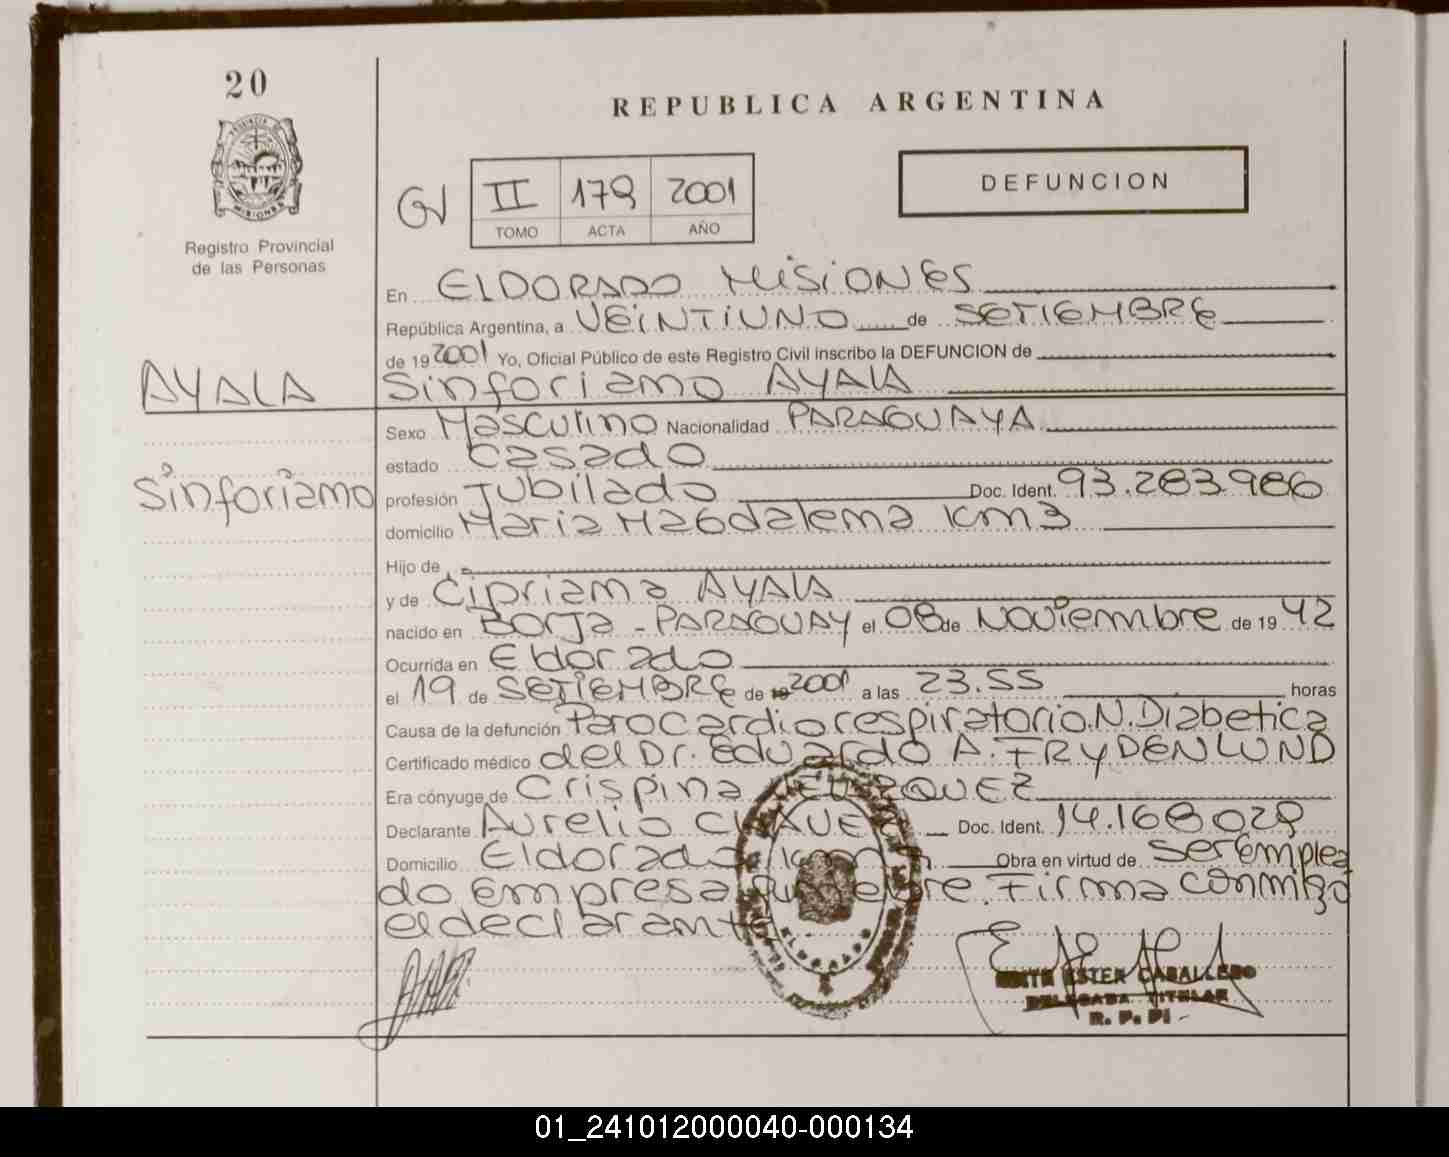 20
REPUBLICA ARGENTINA
PROVINCIA DE
MISIONES
Registro Provincial
de las Personas
GV
II 179 2001
TOMO ACTA AÑO
DEFUNCION
En ELDORADO MISIONES
República Argentina, a VEINTIUNO de SETIEMBRE
de 19 2001 Yo, Oficial Público de este Registro Civil inscribo la DEFUNCION de
AYALA
Sinforiamo AYALA
Sexo Masculino Nacionalidad PARAGUAYA
estado Casado
Sinforiamo
profesión Jubilado Doc. Ident. 93.283.986
domicilio Maria Magdalema Km3
Hijo de
y de Cipriama AYALA
nacido en Borja - PARAGUAY el 08 de Noviembre de 19 42
Ocurrida en Eldorado
el 19 de SETIEMBRE de 19 2001 a las 23.55 horas
Causa de la defunción Parocardiorespiratorio.N.Diabetica
Certificado médico del Dr. Eduardo A. FRYDENLUND
Era cónyuge de Crispina
Declarante Aurelio Doc. Ident. 14.168029
Domicilio Eldorado Obra en virtud de ser emplea
do empresa funebre. Firma conmigo
el declarante
ELDORADO
ESTER CABALLERO
DELEGADA TITULAR
R. P. P.
01_241012000040-000134